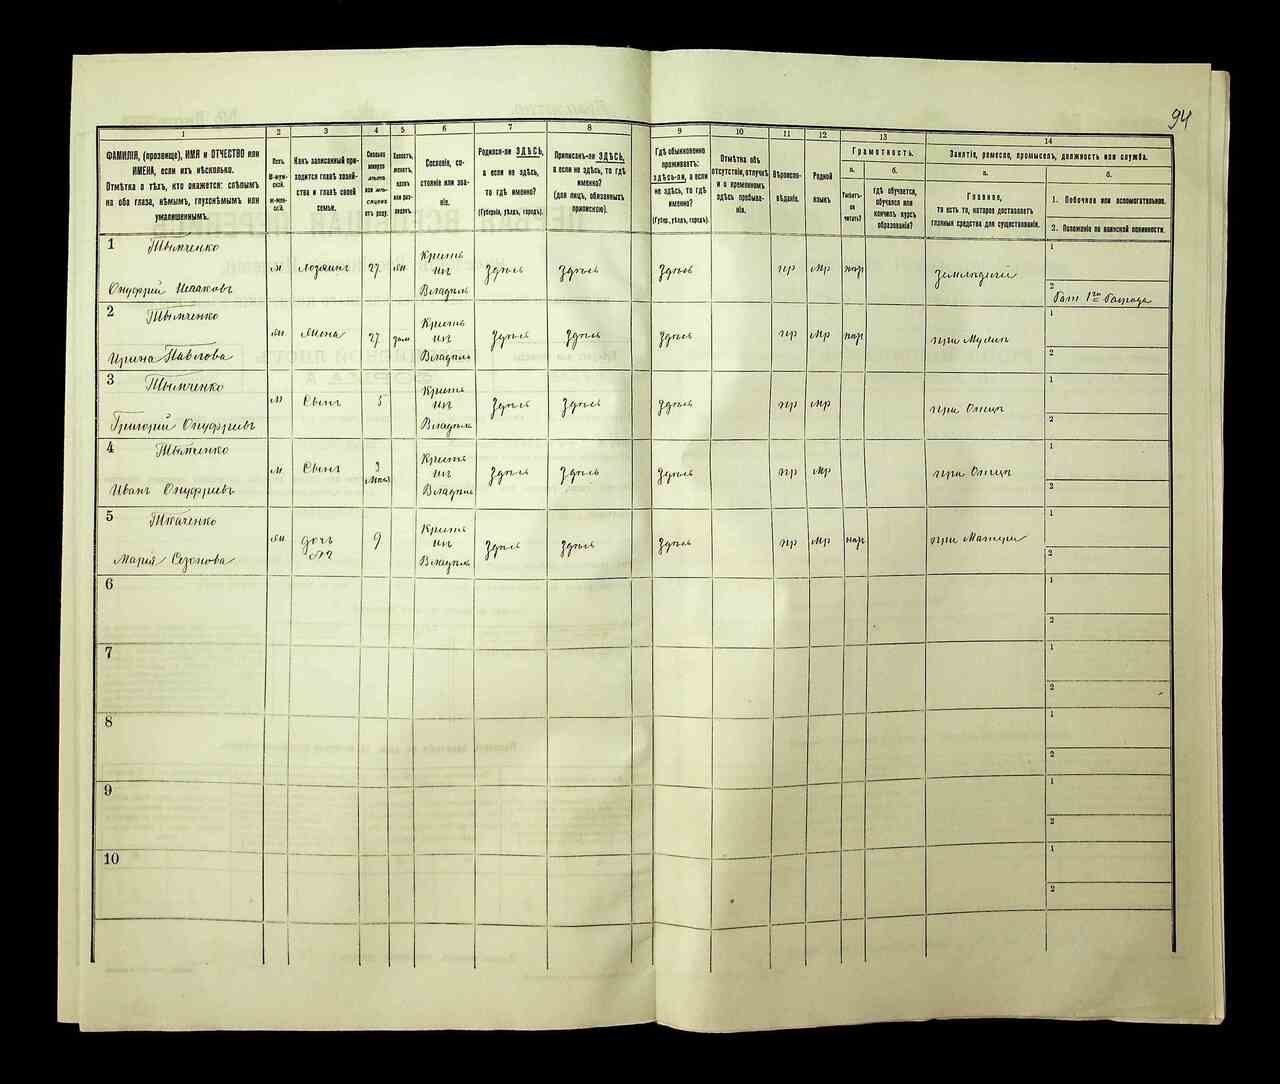 94
1
2
3
4
5
6
7
8
9
10
11
12
13
14
ФАМИЛІЯ, (прозвище), ИМЯ и ОТЧЕСТВО или
ИМЕНА, если ихъ нѣсколько.
Отмѣтка о тѣхъ, кто окажется: слѣпымъ
на оба глаза, нѣмымъ, глухонѣмымъ или
умалишеннымъ.
Полъ.
М-муж-
ской.
Ж-жен-
скій.
Какъ записанный при-
ходится главѣ хозяй-
ства и главѣ своей
семьи.
Сколько
минуло
лѣтъ
или мѣ-
сяцевъ
отъ роду.
Холостъ,
женатъ,
вдовъ
или раз-
веденъ.
Сословіе, со-
стояніе или зва-
ніе.
Родился-ли ЗДѢСЬ,
а если не здѣсь,
то гдѣ именно?
(Губернія, уѣздъ, городъ).
Приписанъ-ли ЗДѢСЬ,
а если не здѣсь, то гдѣ
именно?
(для лицъ, обязанныхъ
припискою).
Гдѣ обыкновенно
проживаетъ:
здѣсь-ли, а если
не здѣсь, то гдѣ
именно?
(Губер., уѣздъ, городъ).
Отмѣтка объ
отсутствіи, отлучкѣ
и о временномъ
здѣсь пребыва-
ніи.
Вѣроиспо-
вѣданіе.
Родной
языкъ
Грамотность.
а.
Умѣетъ-
ли
читать?
б.
Гдѣ обучается,
обучался или
кончилъ курсъ
образованія?
Занятіе, ремесло, промыселъ, должность или служба.
а.
Главное,
то есть то, которое доставляетъ
главныя средства для существованія.
б.
1. Побочное или вспомогательное.
2. Положеніе по воинской повинности.
1
Тымченко
Онуфрій Исааковъ
м хозяинъ 27 жн
Крить
ил
Владпль
Здпсь Здпсь Здпсь
пр мр нпр
земледплій
1
2
2
Тымченко
Ирина Павлова
жн жена 27 зам
Крить
ил
Владпль
Здпсь Здпсь Здпсь
пр мр нпр
при Мужп
1
2
3
Тымченко
Григорій Онуфріевъ
м Сынъ 5
Крить
ил
Владпль
Здпсь Здпсь Здпсь
пр мр
при Отцп
1
2
4
Тымченко
Иванъ Онуфріевъ
м Сынъ 3
Крить
ил
Владпль
Здпсь Здпсь Здпсь
пр мр
при Отцп
1
2
5
Ткаченко
Марія Сезонова
жн дочь 9
Крить
ил
Владпль
Здпсь Здпсь Здпсь
пр мр нпр
при Матери
1
2
6
1
2
7
1
2
8
1
2
9
1
2
10
1
2